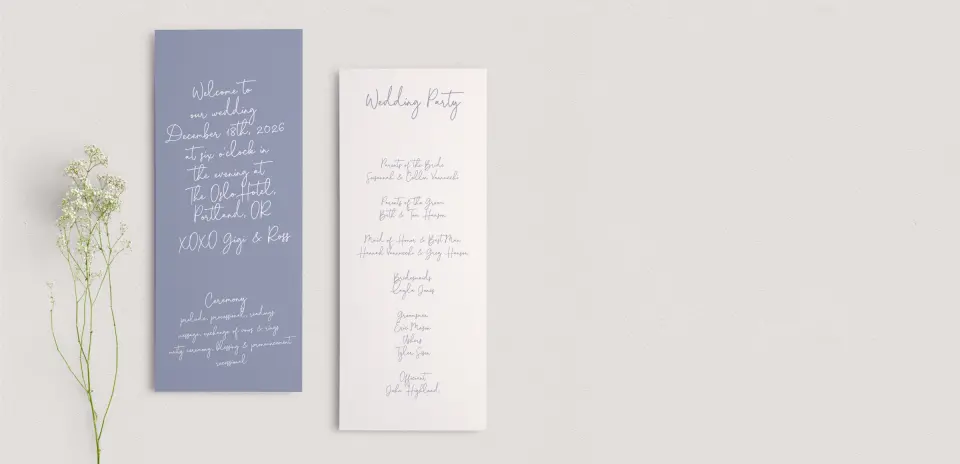 Welcome to
our wedding
December 18th, 2026
at six o'clock in
the evening at
The Oslo Hotel,
Portland, OR
XOXO Gigi & Ross
Ceremony
prelude, processional, readings
message, exchange of vows & rings
unity ceremony, blessing & pronouncement
recessional
Wedding Party
Parents of the Bride
Susannah & Collin
Parents of the Groom
Beth & Tom Hanson
Maid of Honor & Best Man
Hannah & Greg Hanson
Bridesmaids
Kayla Jones
Groomsmen
Eric
Ushers
Tyler
Officiant
John Highland,